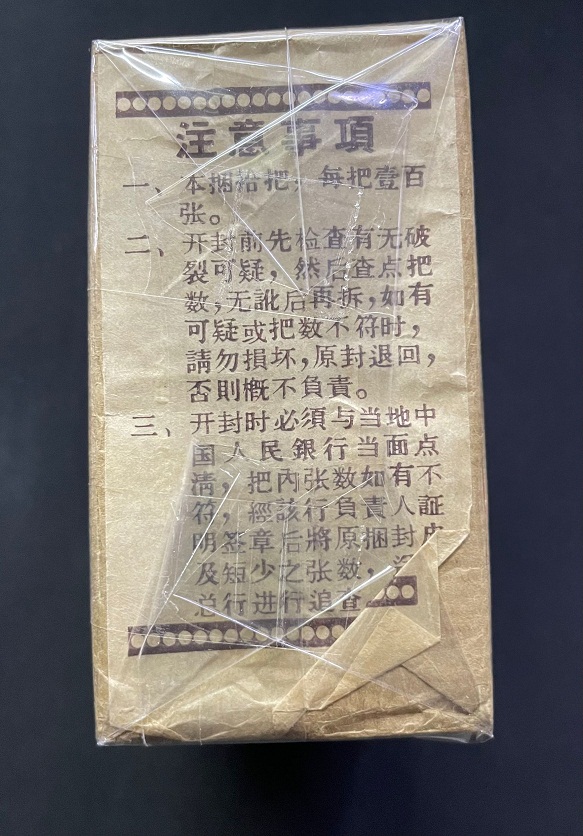 注意事項
一、本捆拾把，每把壹百
张。
二、开封前先检查有无破
裂可疑，然后查点把
数，无訛后再拆，如有
可疑或把数不符时，
請勿損坏，原封退回，
否則概不負責。
三、开封时必須与当地中
国人民銀行当面点
清，把内张数如有不
符，經該行負責人証
明签章后將原捆封皮
及短少之张数，
总行进行追查